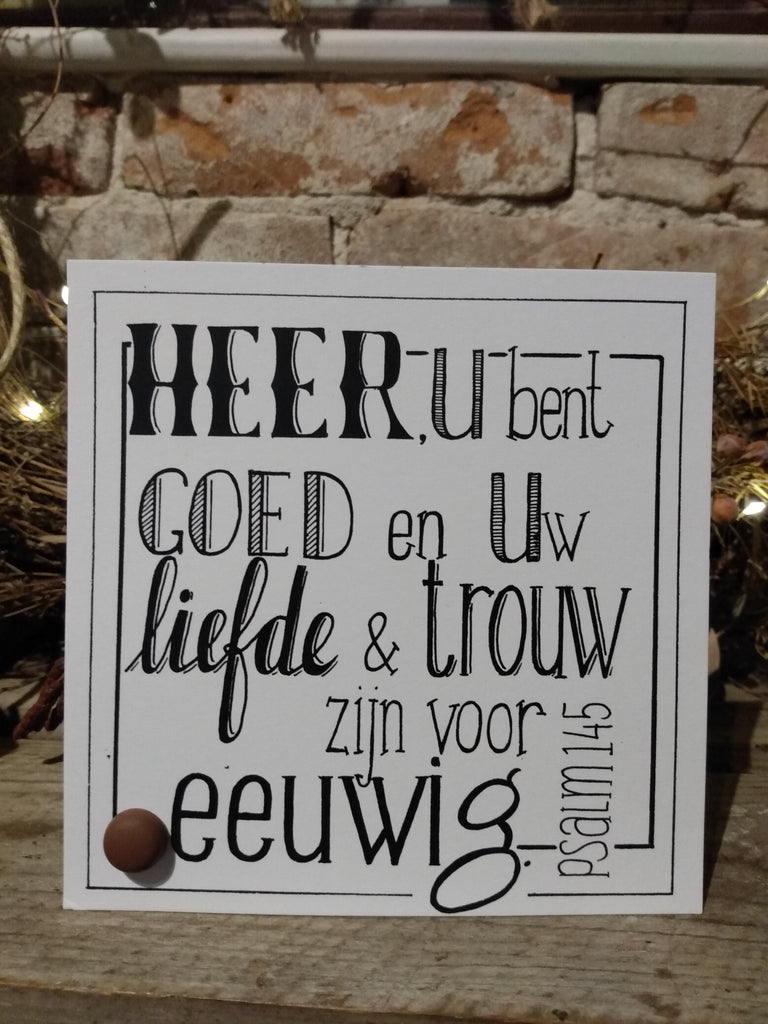 HEER, U bent
GOED en Uw
liefde & trouw
zijn voor
eeuwig.
psalm 145